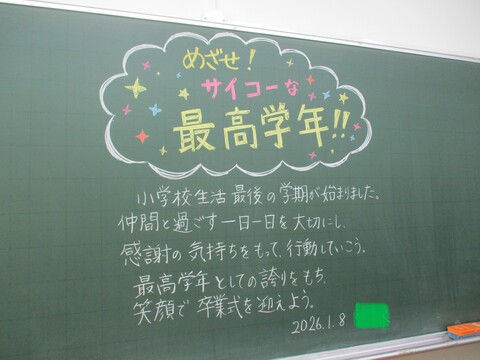 めざせ!
サイコーな
最高学年!!
小学校生活最後の学期が始まりました。
仲間と過ごす一日一日を大切にし、
感謝の気持ちをもって、行動していこう。
最高学年としての誇りをもち、
笑顔で卒業式を迎えよう。
2026.1.8